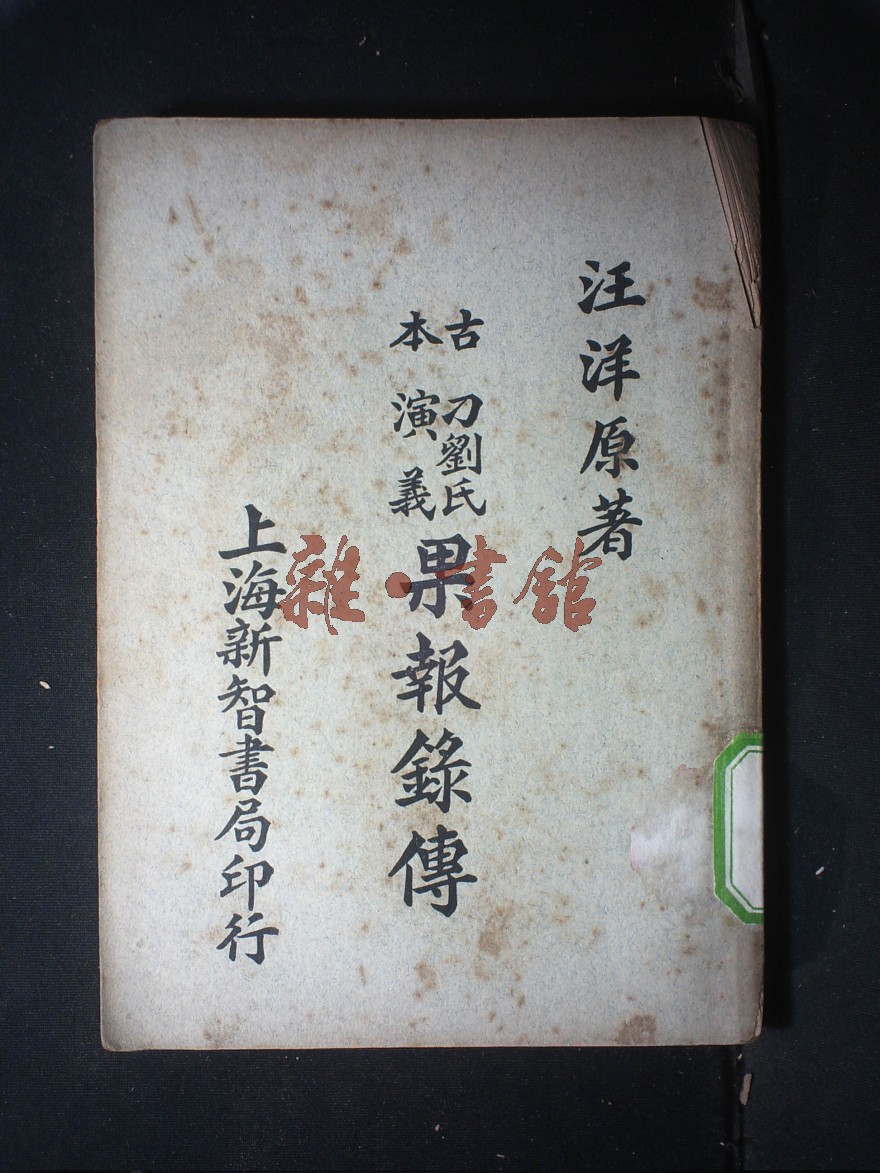 汪洋原著
古本
刁劉氏演義
果報錄傳
上海新智書局印行
雜·書館